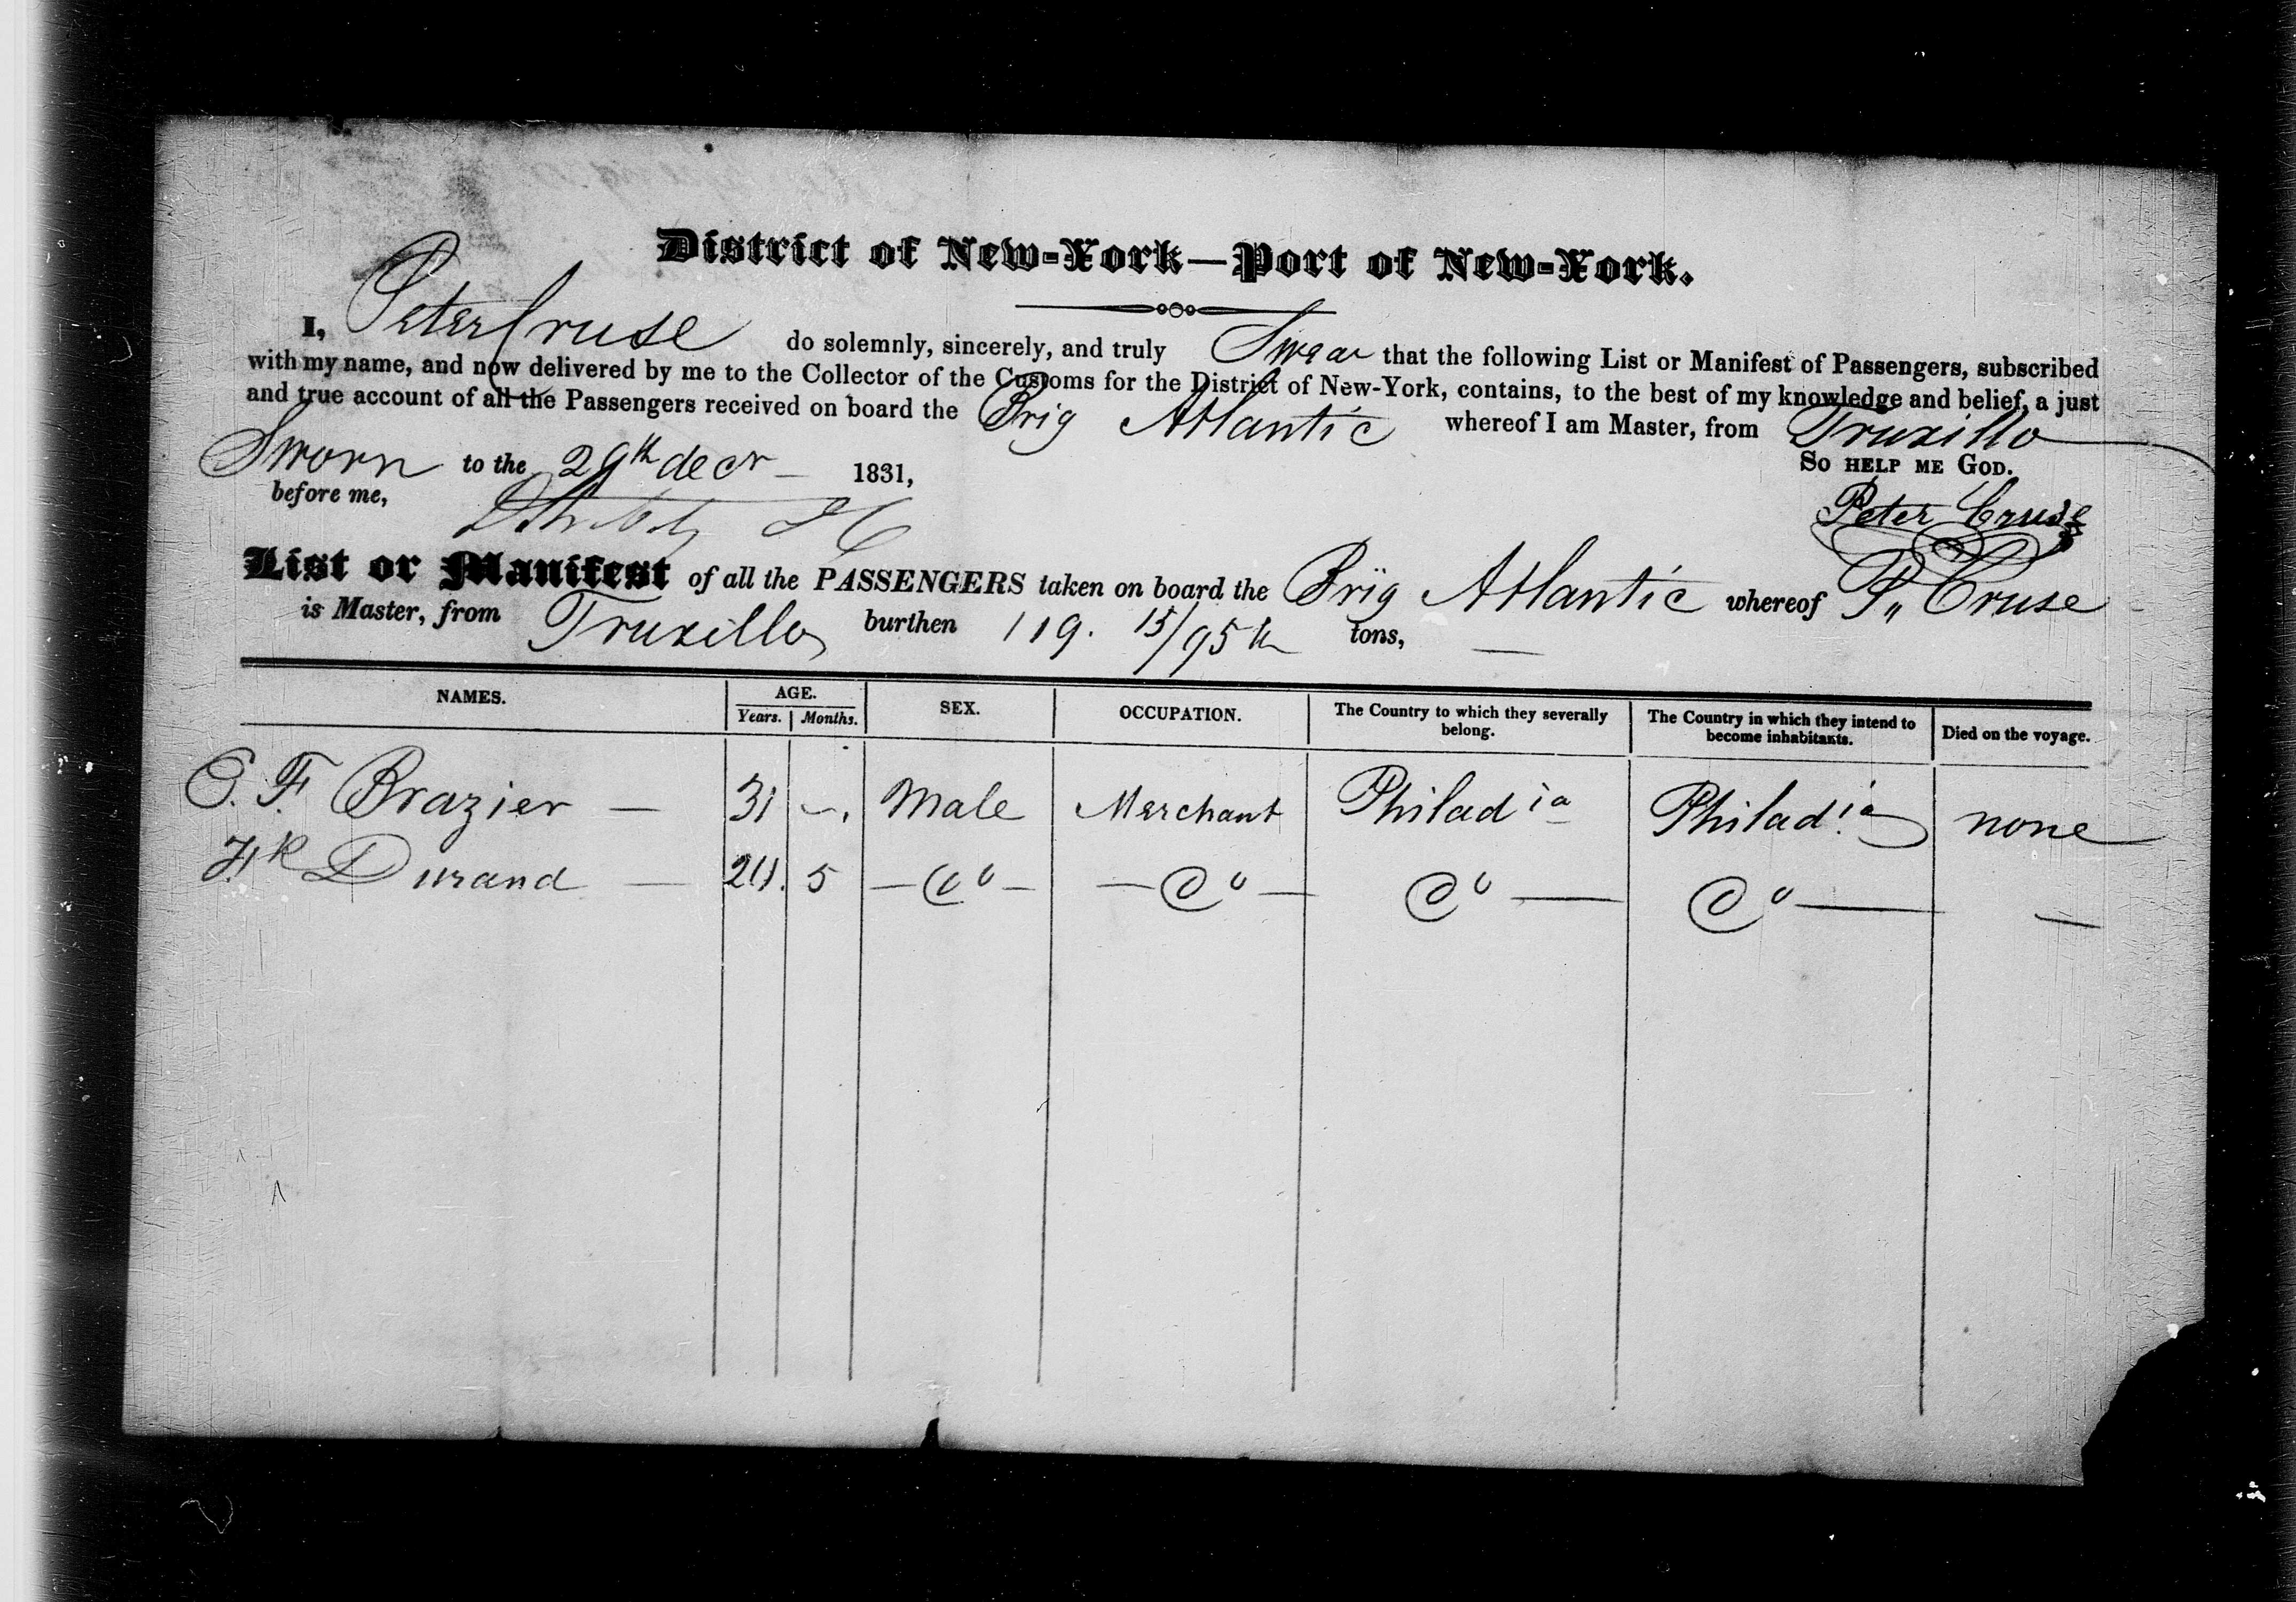 District of New-York—Port of New-York.
I, Peter Cruse do solemnly, sincerely, and truly Swear that the following List or Manifest of Passengers, subscribed
with my name, and now delivered by me to the Collector of the Customs for the District of New-York, contains, to the best of my knowledge and belief, a just
and true account of all the Passengers received on board the Brig Atlantic whereof I am Master, from Truxillo
Sworn to the 29th decr 1831, So help me God.
before me, Peter Cruse
List or Manifest of all the PASSENGERS taken on board the Brig Atlantic whereof P. Cruse
is Master, from Truxillo burthen 119. 15/95th tons,
NAMES. AGE. SEX. OCCUPATION. The Country to which they severally belong. The Country in which they intend to become inhabitants. Died on the voyage.
Years. Months.
E. F. Brazier — 31 — Male Merchant Philadia Philadia none
Fk Durand — 20. 5 — Do — — Do — Do — Do — —